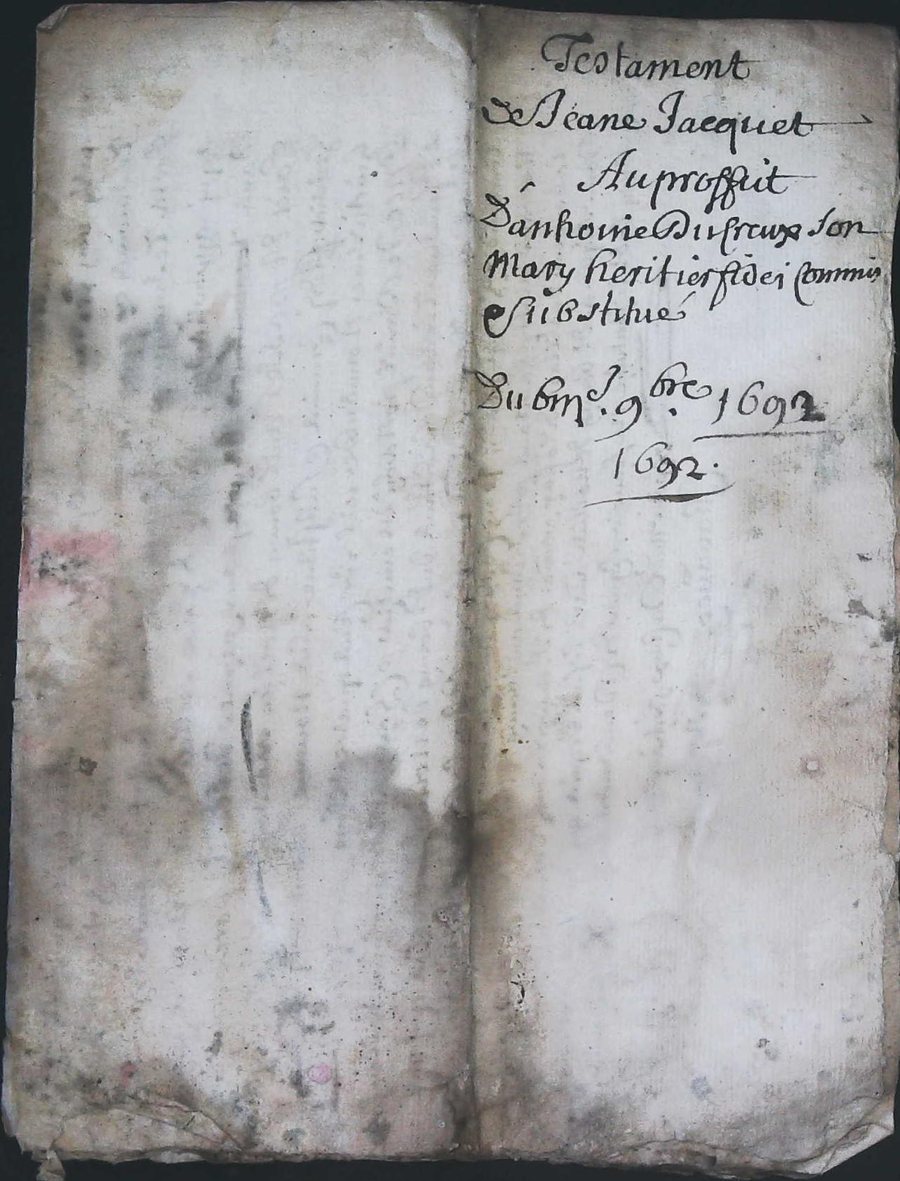 Testament
De Jeane Jacquet
Au proffit
D'anthoine Dufreux son
Mary heritier fidei commis
& substitué
Du 6me. 9bre. 1692
1692.